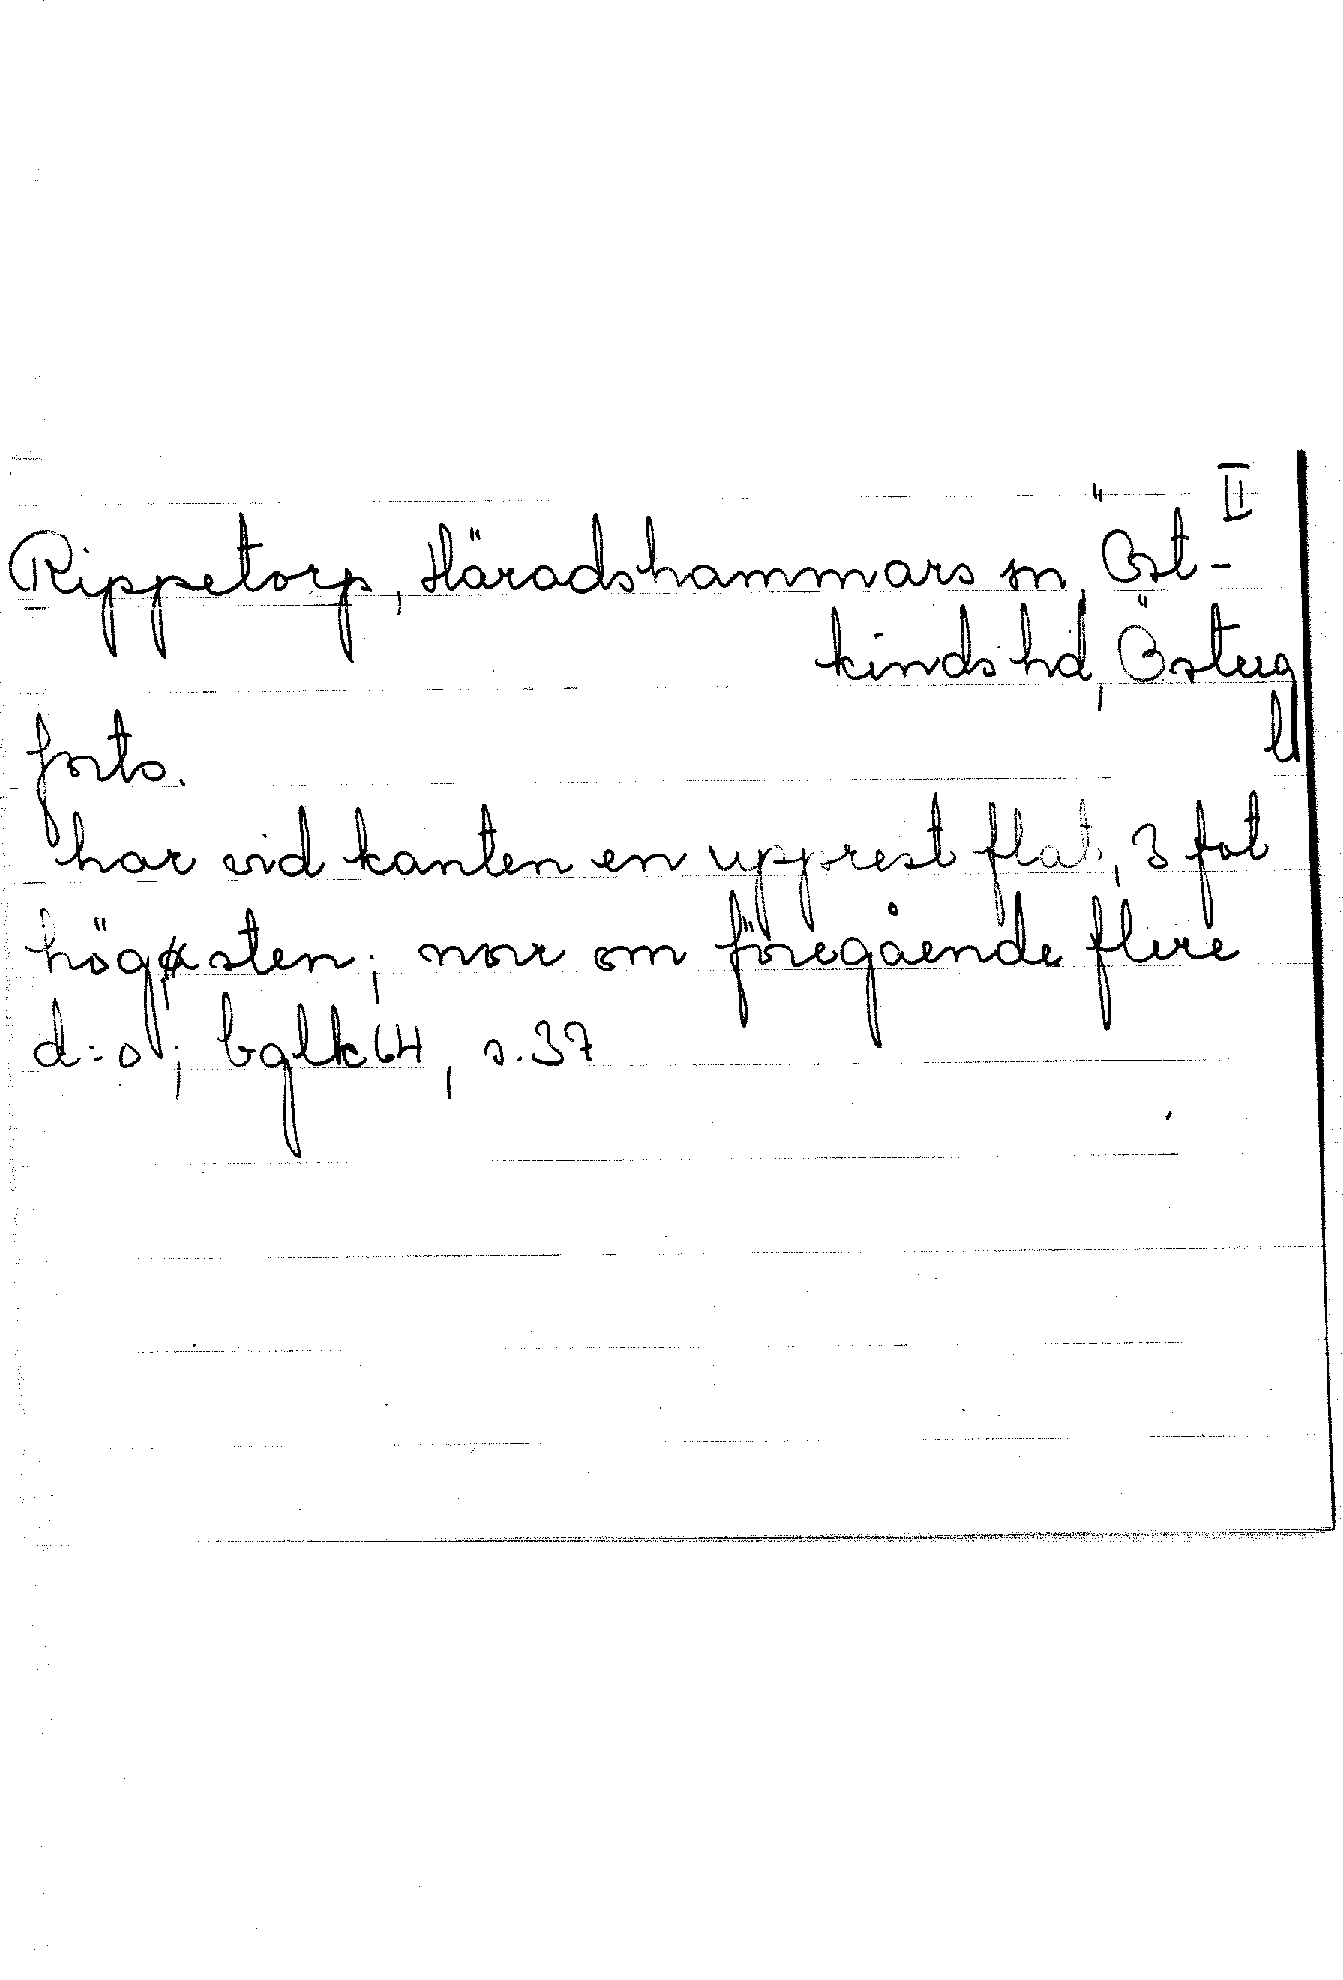 II
Rippetorp, Häradshammars sn, Öst-
kinds hd, Österg
l
forts.
har vid kanten en upprest flat, 3 fot
hög sten; norr om föregående flere
d:o; bglk 64, s. 37